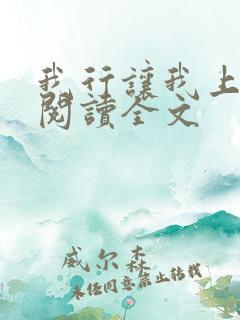 我行讓我上
閱讀全文
威尔森
未经同意禁止转载